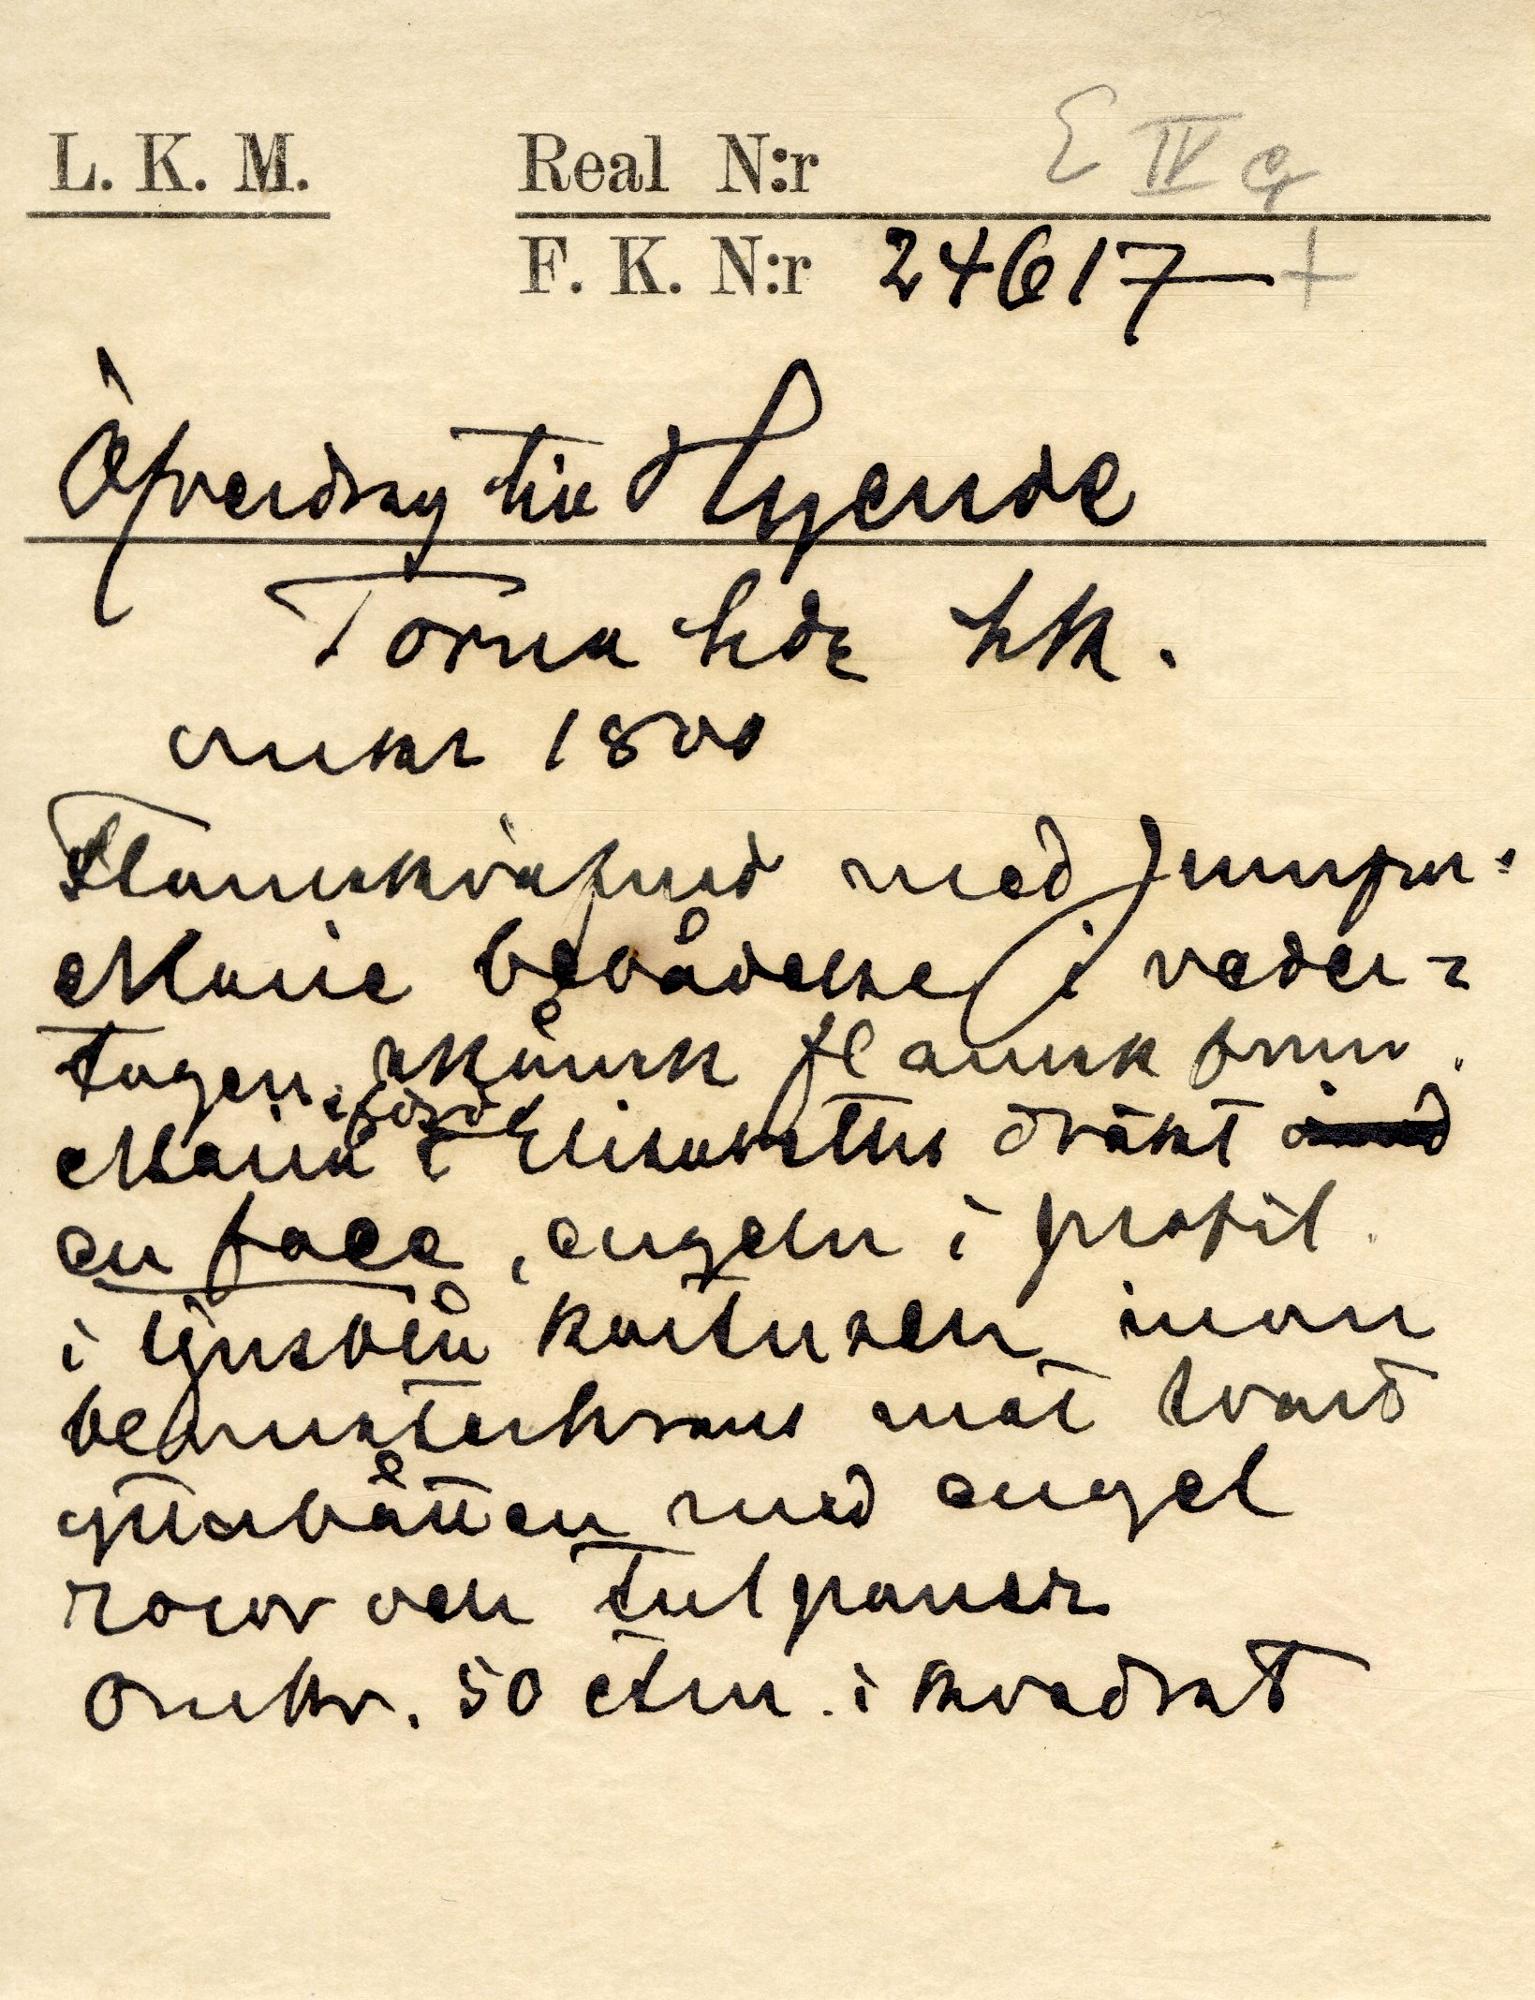 L. K. M. Real N:r E IV a
F. K. N:r 24617 +
Öfverdrag till Hyende
Torna hde LK.
omkr 1800
Flamskväfnad med Jungfru
Marie bebådelse i veder-
tagen skånsk flamskform.
Maria iförd Elisabethss dräkt
en face, engeln i profil.
i ljusblå kartusen inom
blomsterkrans mot svart
ytterbåtten med engel
rosor och tulpaner
Omkr. 50 ctm. i kvadrat